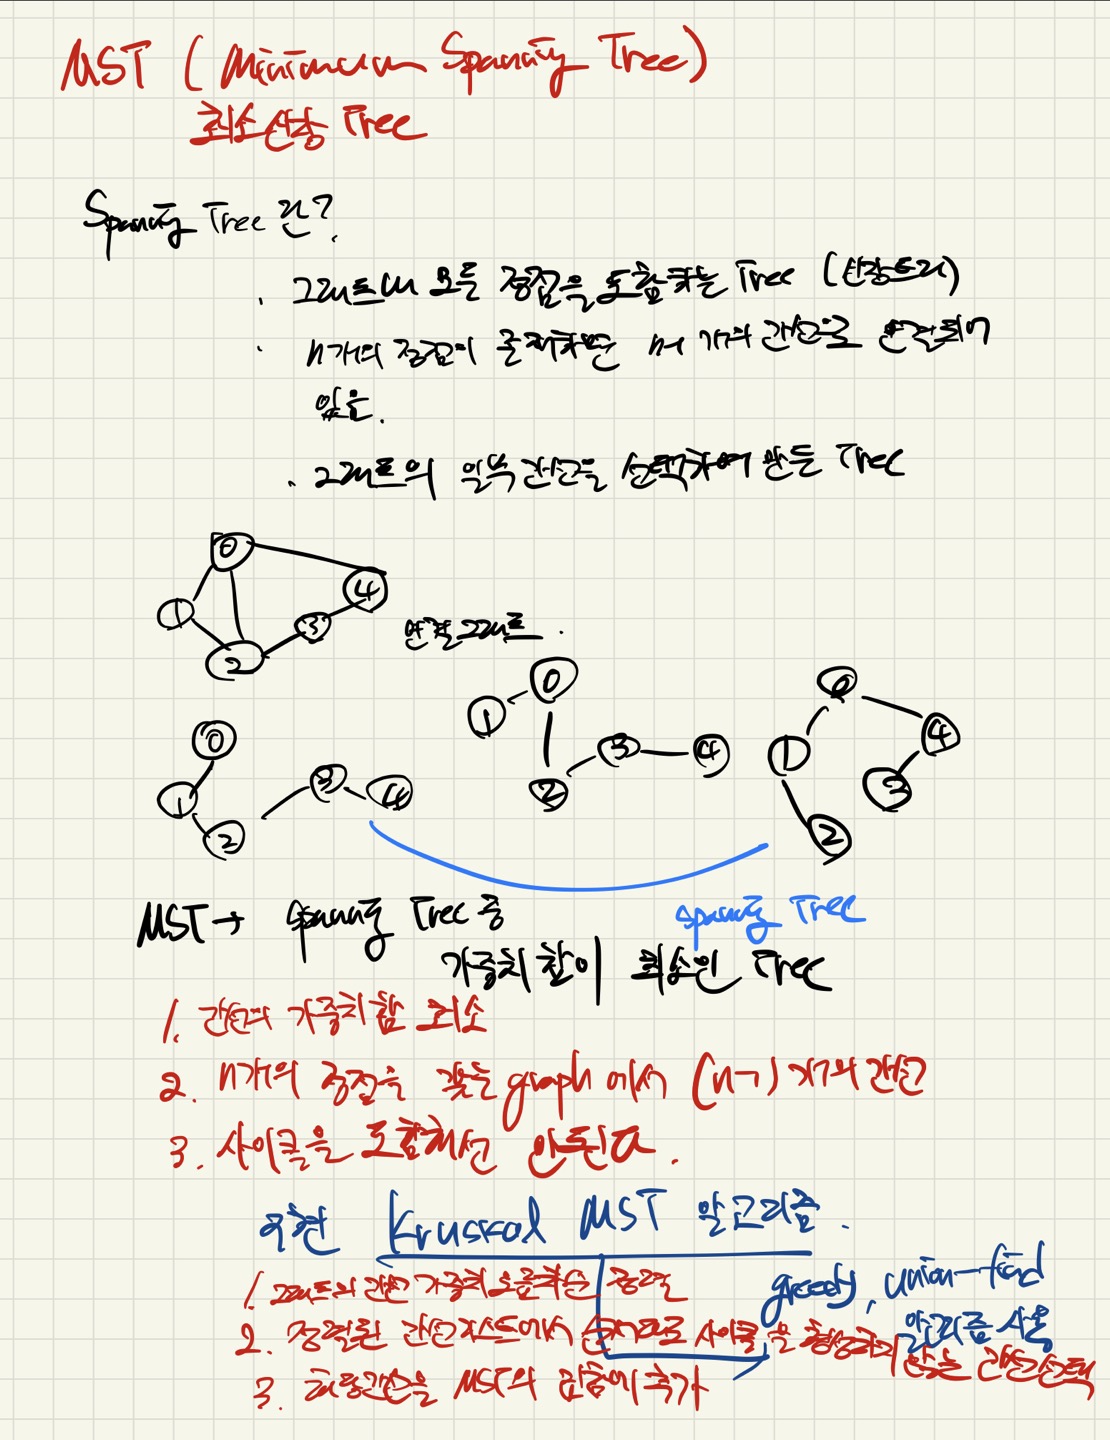 MST ( Minimum Spanning Tree )
최소신장 Tree
Spanning Tree 란?
. 그래프내 모든 정점을 포함하는 Tree (신장트리)
. n개의 정점이 존재하면 n-1 개의 간선으로 연결되어
있음.
. 그래프의 일부 간선을 선택하여 만든 Tree
0
4
1
3
2
연결그래프.
0
0
1
0
3
4
4
1
3
1
3
4
2
2
2
MST → Spanning Tree 중
Spanning Tree
가중치 합이 최소인 Tree
1. 간선의 가중치 합 최소
2. n개의 정점을 갖는 graph 에서 (n-1) 개의 간선
3. 사이클을 포함해선 안된다.
위한 Kruskal MST 알고리즘.
1. 그래프의 간선 가중치 오름차순 정렬
greedy, union-find
알고리즘 사용
2. 정렬된 간선리스트에서 순서대로 사이클을 형성하지 않는 간선선택
3. 해당간선을 MST의 집합에 추가